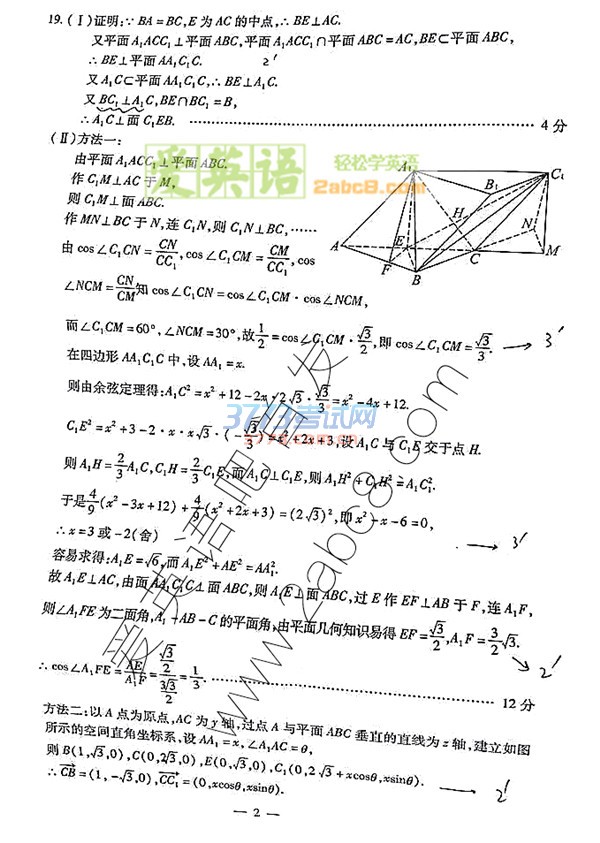 19. (Ⅰ)证明:∵BA=BC,E为AC的中点,∴BE⊥AC.
又平面A₁ACC₁⊥平面ABC,平面A₁ACC₁∩平面ABC=AC,BE⊂平面ABC,
∴BE⊥平面AA₁C₁C. 2'
又A₁C⊂平面AA₁C₁C,∴BE⊥A₁C.
又BC₁⊥A₁C,BE∩BC₁=B,
∴A₁C⊥面C₁EB. …………………………………………… 4分
(Ⅱ)方法一:
由平面A₁ACC₁⊥平面ABC.
作C₁M⊥AC于M,
则C₁M⊥面ABC.
作MN⊥BC于N,连C₁N,则C₁N⊥BC,……
由cos∠C₁CN=CN/CC₁,cos∠C₁CM=CM/CC₁,cos
∠NCM=CN/CM知cos∠C₁CN=cos∠C₁CM·cos∠NCM,
而∠C₁CM=60°,∠NCM=30°,故1/2=cos∠C₁CM·√3/2,即cos∠C₁CM=√3/3. → 3'
在四边形AA₁C₁C中,设AA₁=x.
则由余弦定理得:A₁C²=x²+12-2x·2√3·√3/3=x²-4x+12.
C₁E²=x²+3-2·x·√3·(-√3/3)=x²+2x+3,设A₁C与C₁E交于点H.
则A₁H=2/3A₁C,C₁H=2/3C₁E,而A₁C⊥C₁E,则A₁H²+C₁H²=A₁C₁².
于是4/9(x²-3x+12)+4/9(x²+2x+3)=(2√3)²,即x²-x-6=0,
∴x=3或-2(舍) → 3'
容易求得:A₁E=√6,而A₁E²+AE²=AA₁².
故A₁E⊥AC,由面AA₁C₁C⊥面ABC,则A₁E⊥面ABC,过E作EF⊥AB于F,连A₁F,
则∠A₁FE为二面角A₁-AB-C的平面角,由平面几何知识易得EF=√3/2,A₁F=3/2√3. → 2'
∴cos∠A₁FE=AE/A₁F=(√3/2)/(3√3/2)=1/3. …………………………………………… 12分
方法二:以A点为原点,AC为y轴,过点A与平面ABC垂直的直线为z轴,建立如图
所示的空间直角坐标系,设AA₁=x,∠A₁AC=θ,
则B(1,√3,0),C(0,2√3,0),E(0,√3,0),C₁(0,2√3+xcosθ,xsinθ).
∴CB=(1,-√3,0),CC₁=(0,xcosθ,xsinθ). → 2'
— 2 —
A₁
B₁
C₁
H
N
A
E
F
B
C
M
爱英语
轻松学英语
2abc8.com
3773考试网
3773.com
www.2abc8.com